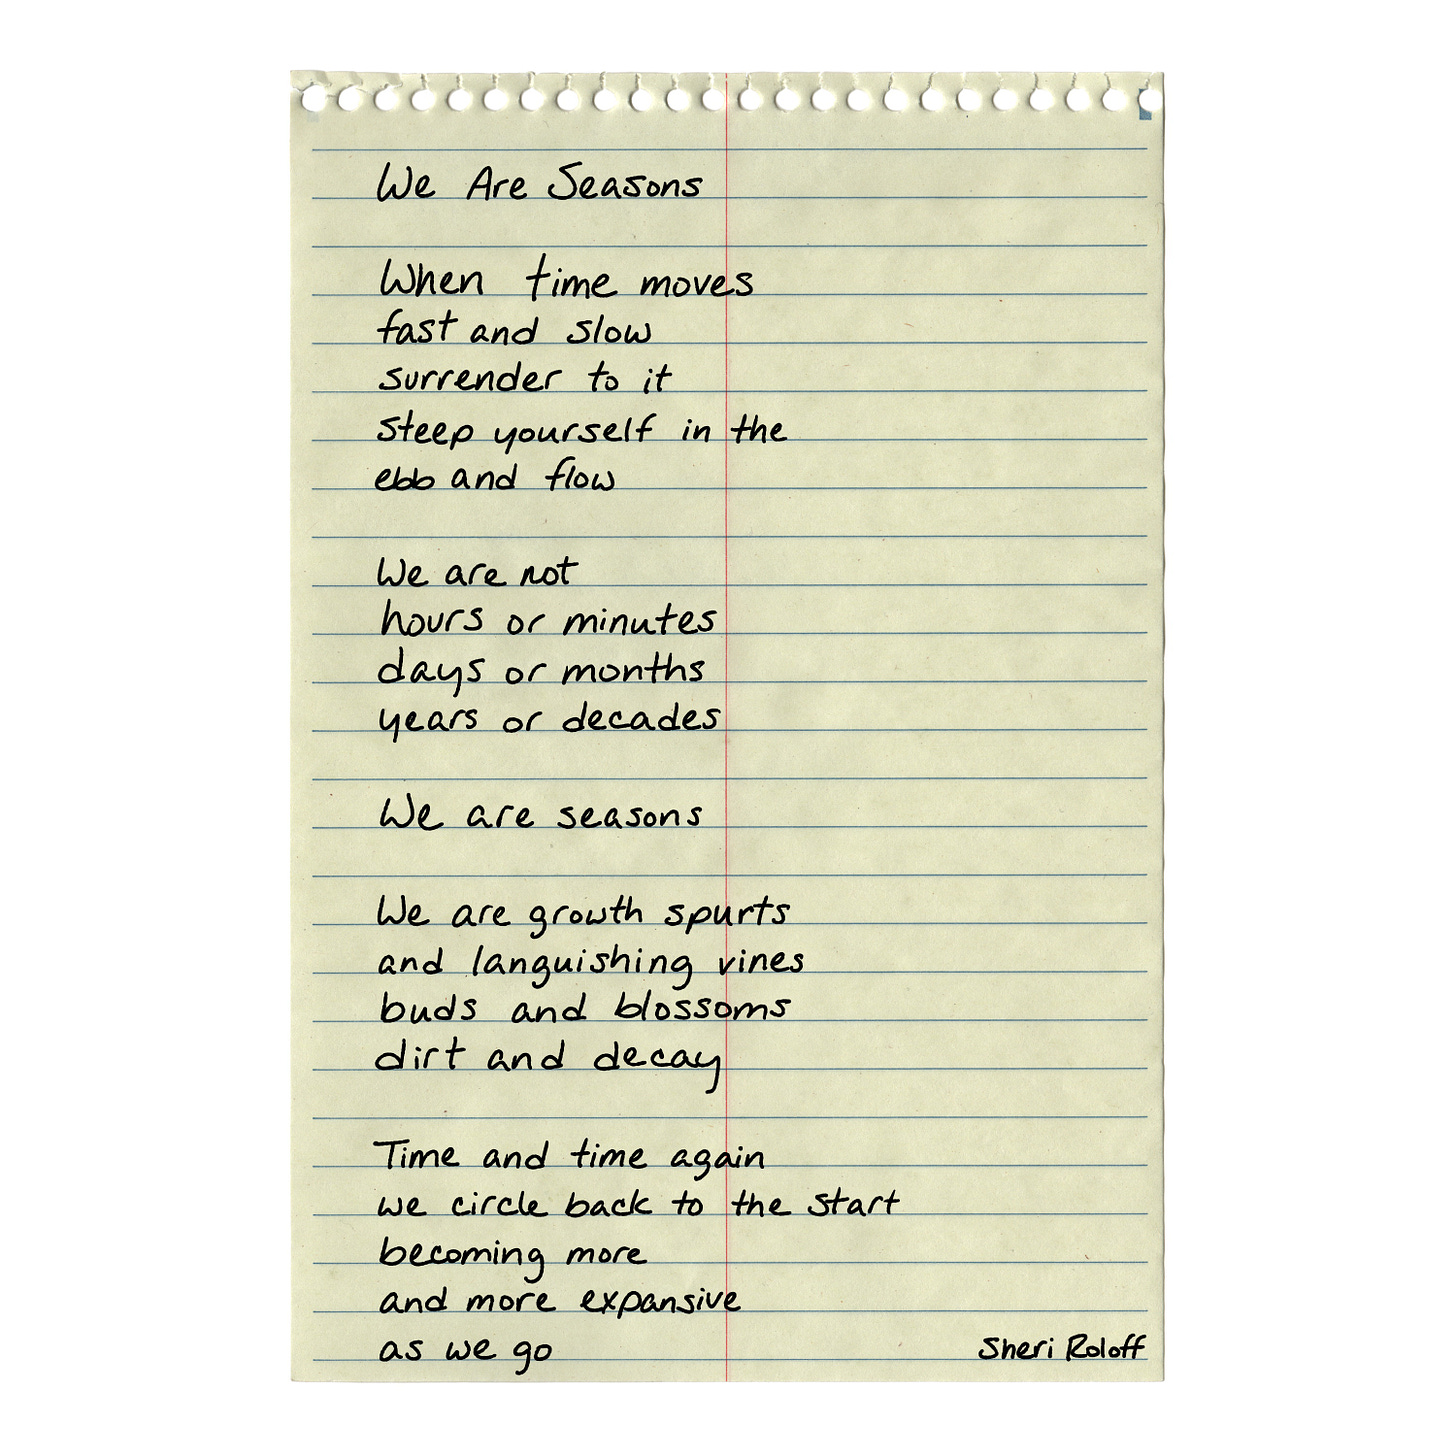 We Are Seasons
When time moves
fast and slow
surrender to it
steep yourself in the
ebb and flow
We are not
hours or minutes
days or months
years or decades
We are seasons
We are growth spurts
and languishing vines
buds and blossoms
dirt and decay
Time and time again
we circle back to the start
becoming more
and more expansive
as we go
Sheri Roloff